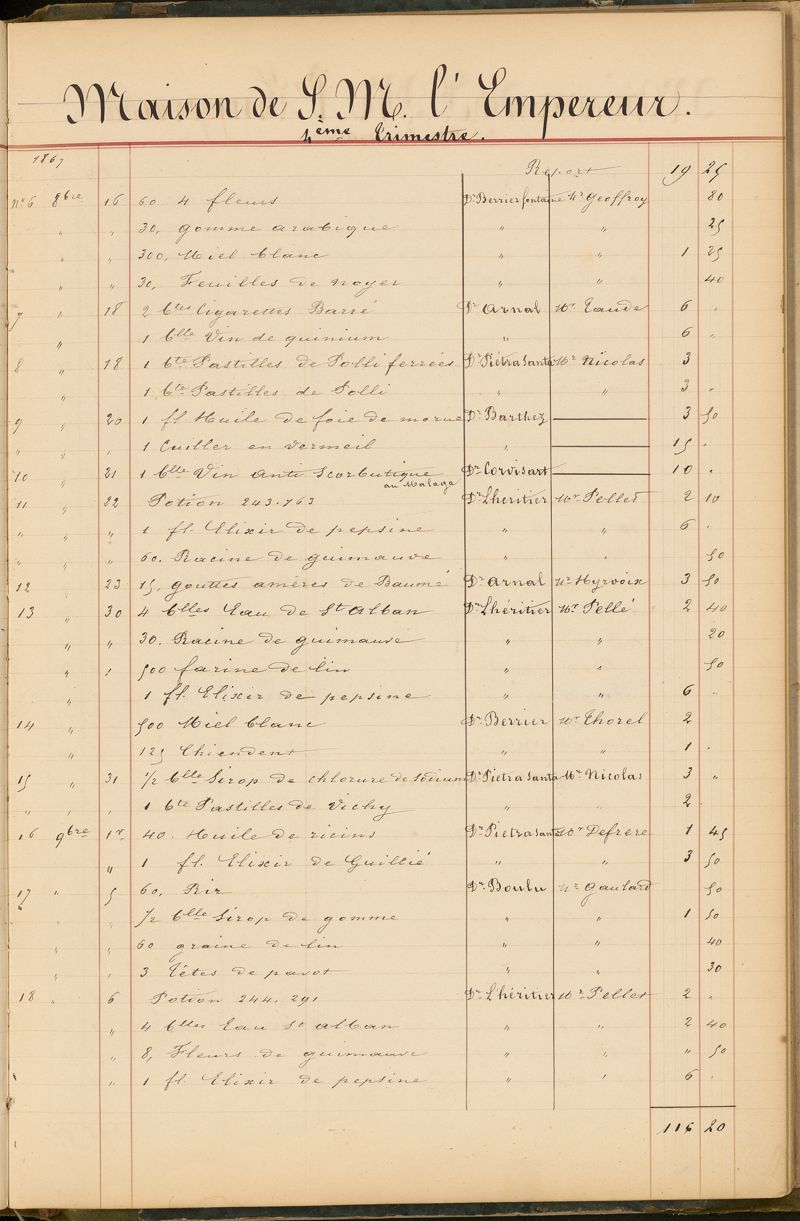 Maison de S. M. l' Empereur.
4ème Trimestre.
1867 Report 19 25
No 6 8bre 16 60 4 fleurs Dr Berrier fontaine Mr Geoffroy 80
" " 30, gomme arabique " " 25
" " 300, Miel blanc " " 1 25
" " 30, Feuilles de noyer " " 40
7 " 18 2 btes Cigarettes Barré Dr Arnal Mr Taude 6 "
" 1 blle Vin de quinium " 6 "
8 " 18 1 bte Pastilles de Polli ferrées Dr Piétra Santa Mr Nicolas 3
" 1 bte Pastilles de Polli " " 3 "
9 " 20 1 fl. Huile de foie de morue Dr Barthez — 3 50
" " " 1 Cuiller en vermeil " — 15 "
10 " 21 1 blle Vin anti Scorbutique Dr Corvisart — 10 "
au Malaga
11 " 22 Potion 243.763 Dr Lheritier Mr Pellet 2 10
" " " 1 fl. Elixir de pepsine " " 6 "
" " " 60. Racine de guimauve " " 50
12 " 23 15, gouttes amères de Baumé Dr Arnal Mr Hyrvoix 3 50
13 " 30 4 blles Eau de St Alban Dr Lhéritier Mr Pellé 2 40
" " 30. Racine de guimauve " " 20
" " 500 farine de lin " " 50
" 1 fl. Elixir de pepsine " " 6 "
14 " 500 Miel blanc Dr Berrier Mr Thorel 2
" 125 Chiendent " " 1 "
15 " 31 1/2 blle Sirop de chlorure de sodium Dr Pietra Santa Mr Nicolas 3 "
" " " 1 bte Pastilles de Vichy " " 2
16 9bre 1r 40. Huile de ricins Dr Pietra Santa Mr Defrere 1 45
" 1 fl. Elixir de Guillié " " 3 50
17 " 5 60, Riz Dr Boulu Mr Gaulard 50
" 1/2 blle Sirop de gomme " " 1 50
" " 60 graine de lin " " 40
" " 3 Têtes de pavot " " 30
18 " 6 Potion 244.291 Dr Lhéritier Mr Pellet 2 "
" 4 blles Eau St alban " " 2 40
" 8, Fleurs de guimauve " " " 50
" 1 fl. Elixir de pepsine " " 6 "
116 20